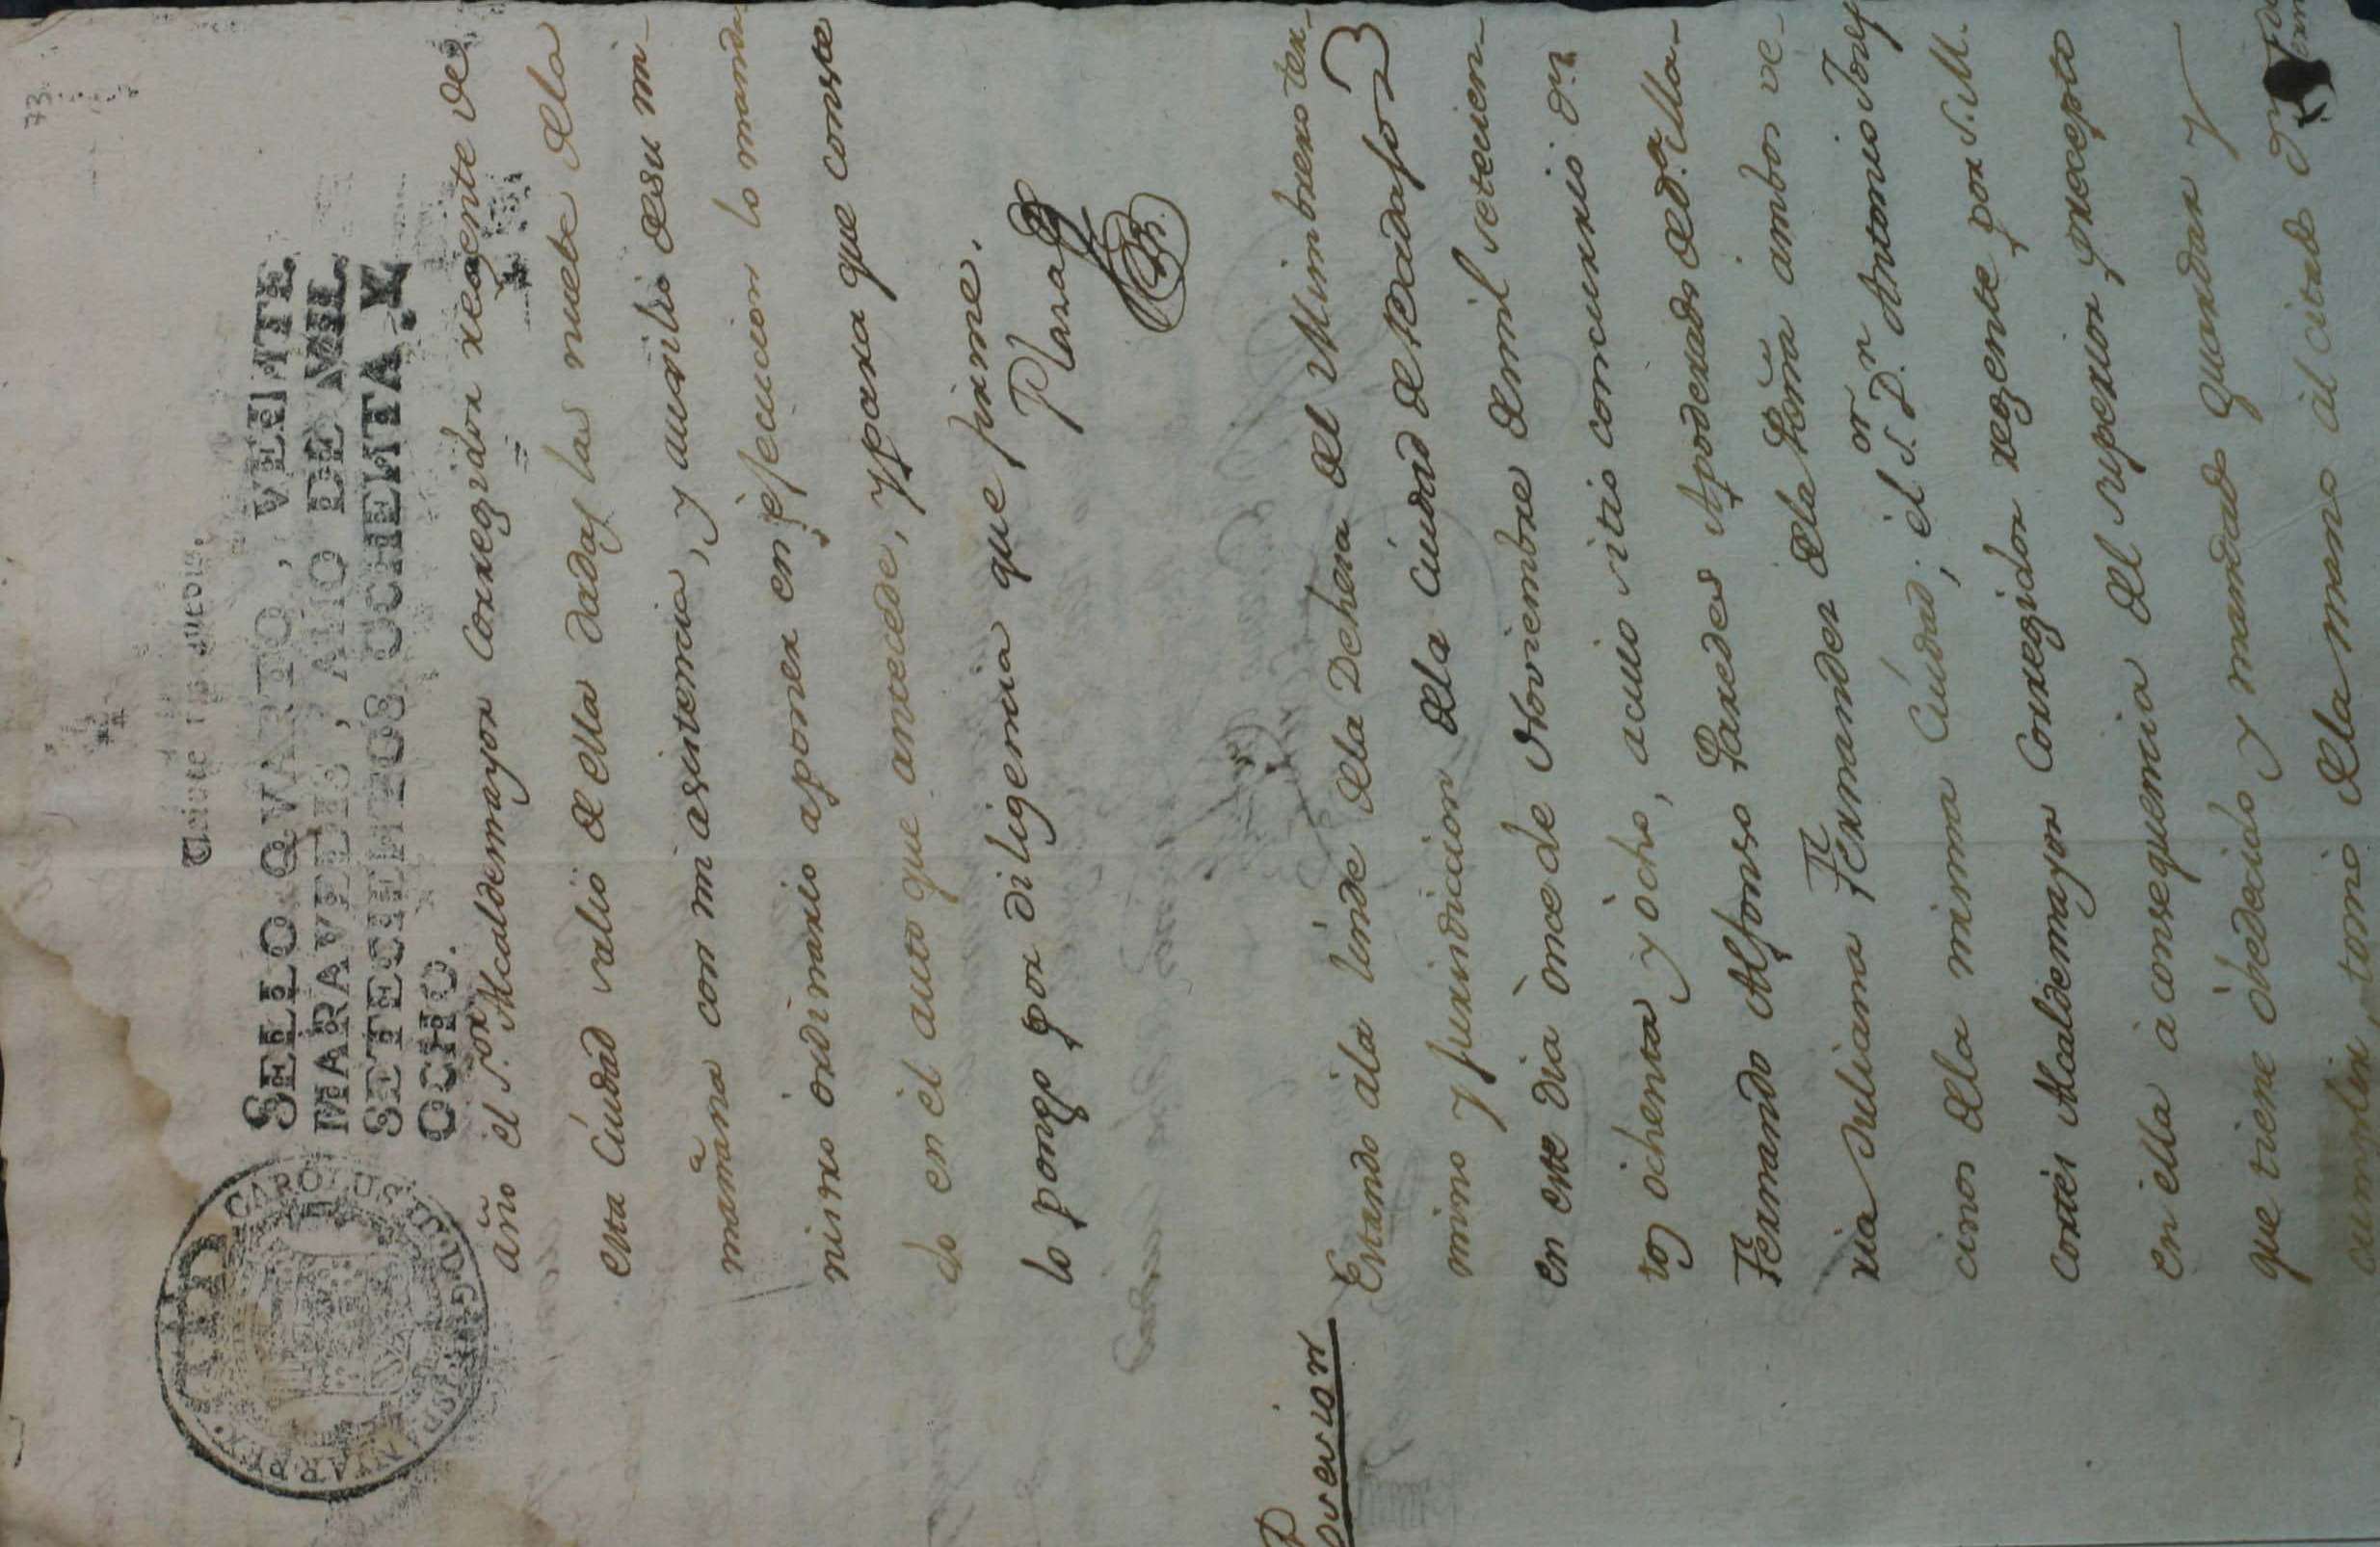 73
Veinte maravedis.
SELLO QVARTO, VEINTE
MARAVEDIS, AÑO DE MIL
SETECIENTOS OCHENTA Y
OCHO.
CAROLUS III D G HISPANIAR REX
año el S.or Alcaldemayor Correxidor rexente de
esta Ciudad salio de ella dadas las nuebe dela
mañana con mi asistencia, y auxilio desu mi-
nistro ordinario aponer en ejecucion lo manda
do en el auto que antecede, y para que conste
lo pongo por diligencia que firme.
Plaza
Posesion
Estando ála linde dela Dehesa del Mimbrero ter-
mino y jurisdicion dela Ciudad de
en este dia once de Noviembre demil setecien-
tos óchenta y ócho, acuio sitio concurrio d.n
Fernando Alfonso Paredes Apoderado de d.a Ma-
ria Juliana Fernandez dela ambos ve-
cinos dela misma Ciudad; él S.or D.n Antonio Josef
Cortés Alcaldemayor Correxidor rexente por S.M.
en ella á consequencia del superior precepto
que tiene óbedecido y mandado guardar y
cumplir tomó dela mano al citado d.n